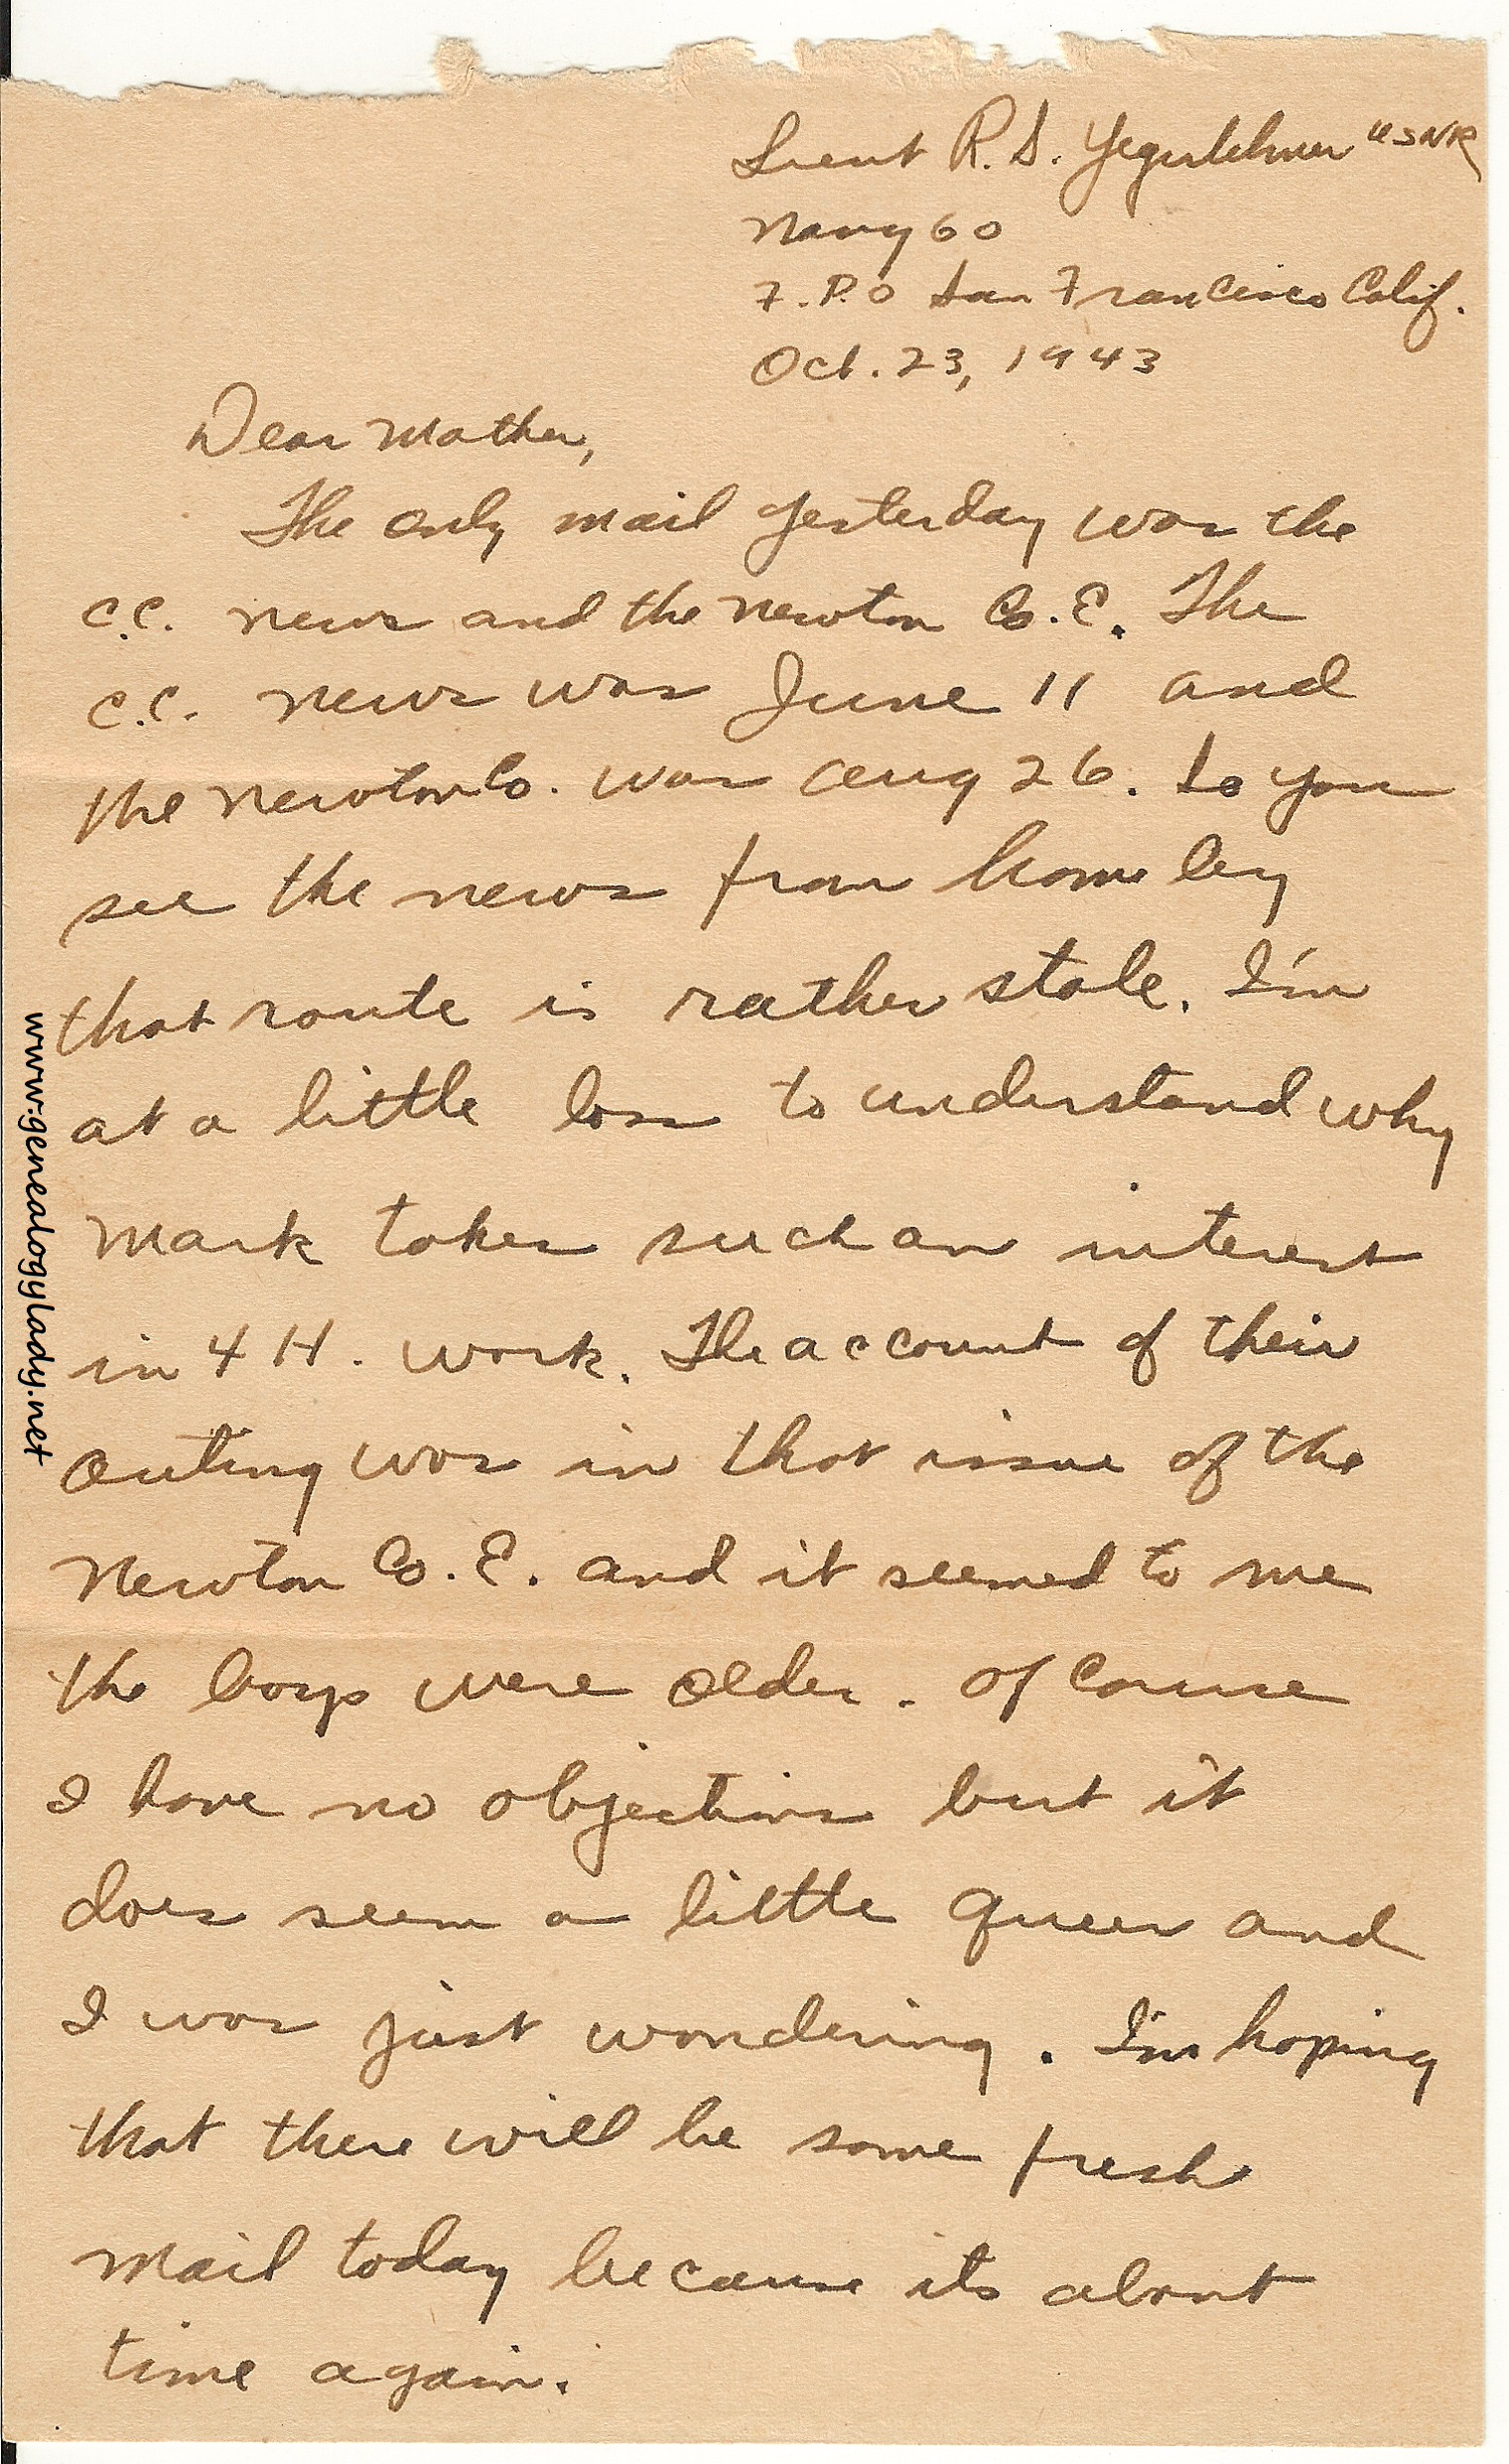 Lieut R. S. Yegerlehner USNR
Navy 60
F.P.O San Francisco Calif.
Oct. 23, 1943
Dear Mother,
The only mail yesterday was the
C.C. news and the Newton Co. E. The
C.C. news was June 11 and
the Newton Co. was Aug 26. So you
see the news from home by
that route is rather stale. I'm
at a little loss to understand why
Mark takes such an interest
in 4 H. work. The account of their
outing was in that issue of the
Newton Co. E. and it seemed to me
the boys were older. Of course
I have no objections but it
does seem a little queer and
I was just wondering. I'm hoping
that there will be some fresh
mail today because its about
time again.
www.genealogylady.net